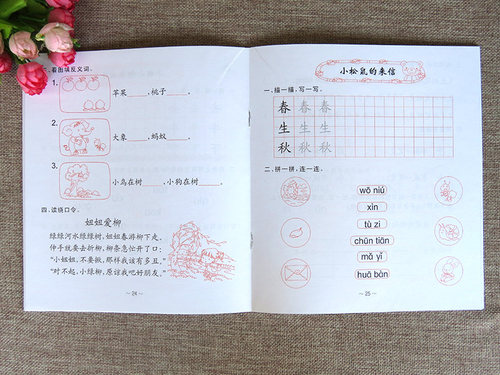 三、看图填反义词。
1.
苹果____,桃子____。
2.
大象____,蚂蚁____。
3.
小鸟在树____,小狗在树____。
四、读绕口令。
妞妞爱柳
绿绿河水绿绿树,妞妞春游柳下走。
伸手就要去折柳,柳条急忙开了口:
“小妞妞,不要揪,那样我该有多丑。”
“对不起,小绿柳,原谅我吧好朋友。”
~ 24 ~
小松鼠的来信
一、描一描,写一写。
春 春 春
生 生 生
秋 秋 秋
二、拼一拼,连一连。
wō niú
xìn
tù zi
chūn tiān
mǎ yǐ
huā bàn
~ 25 ~